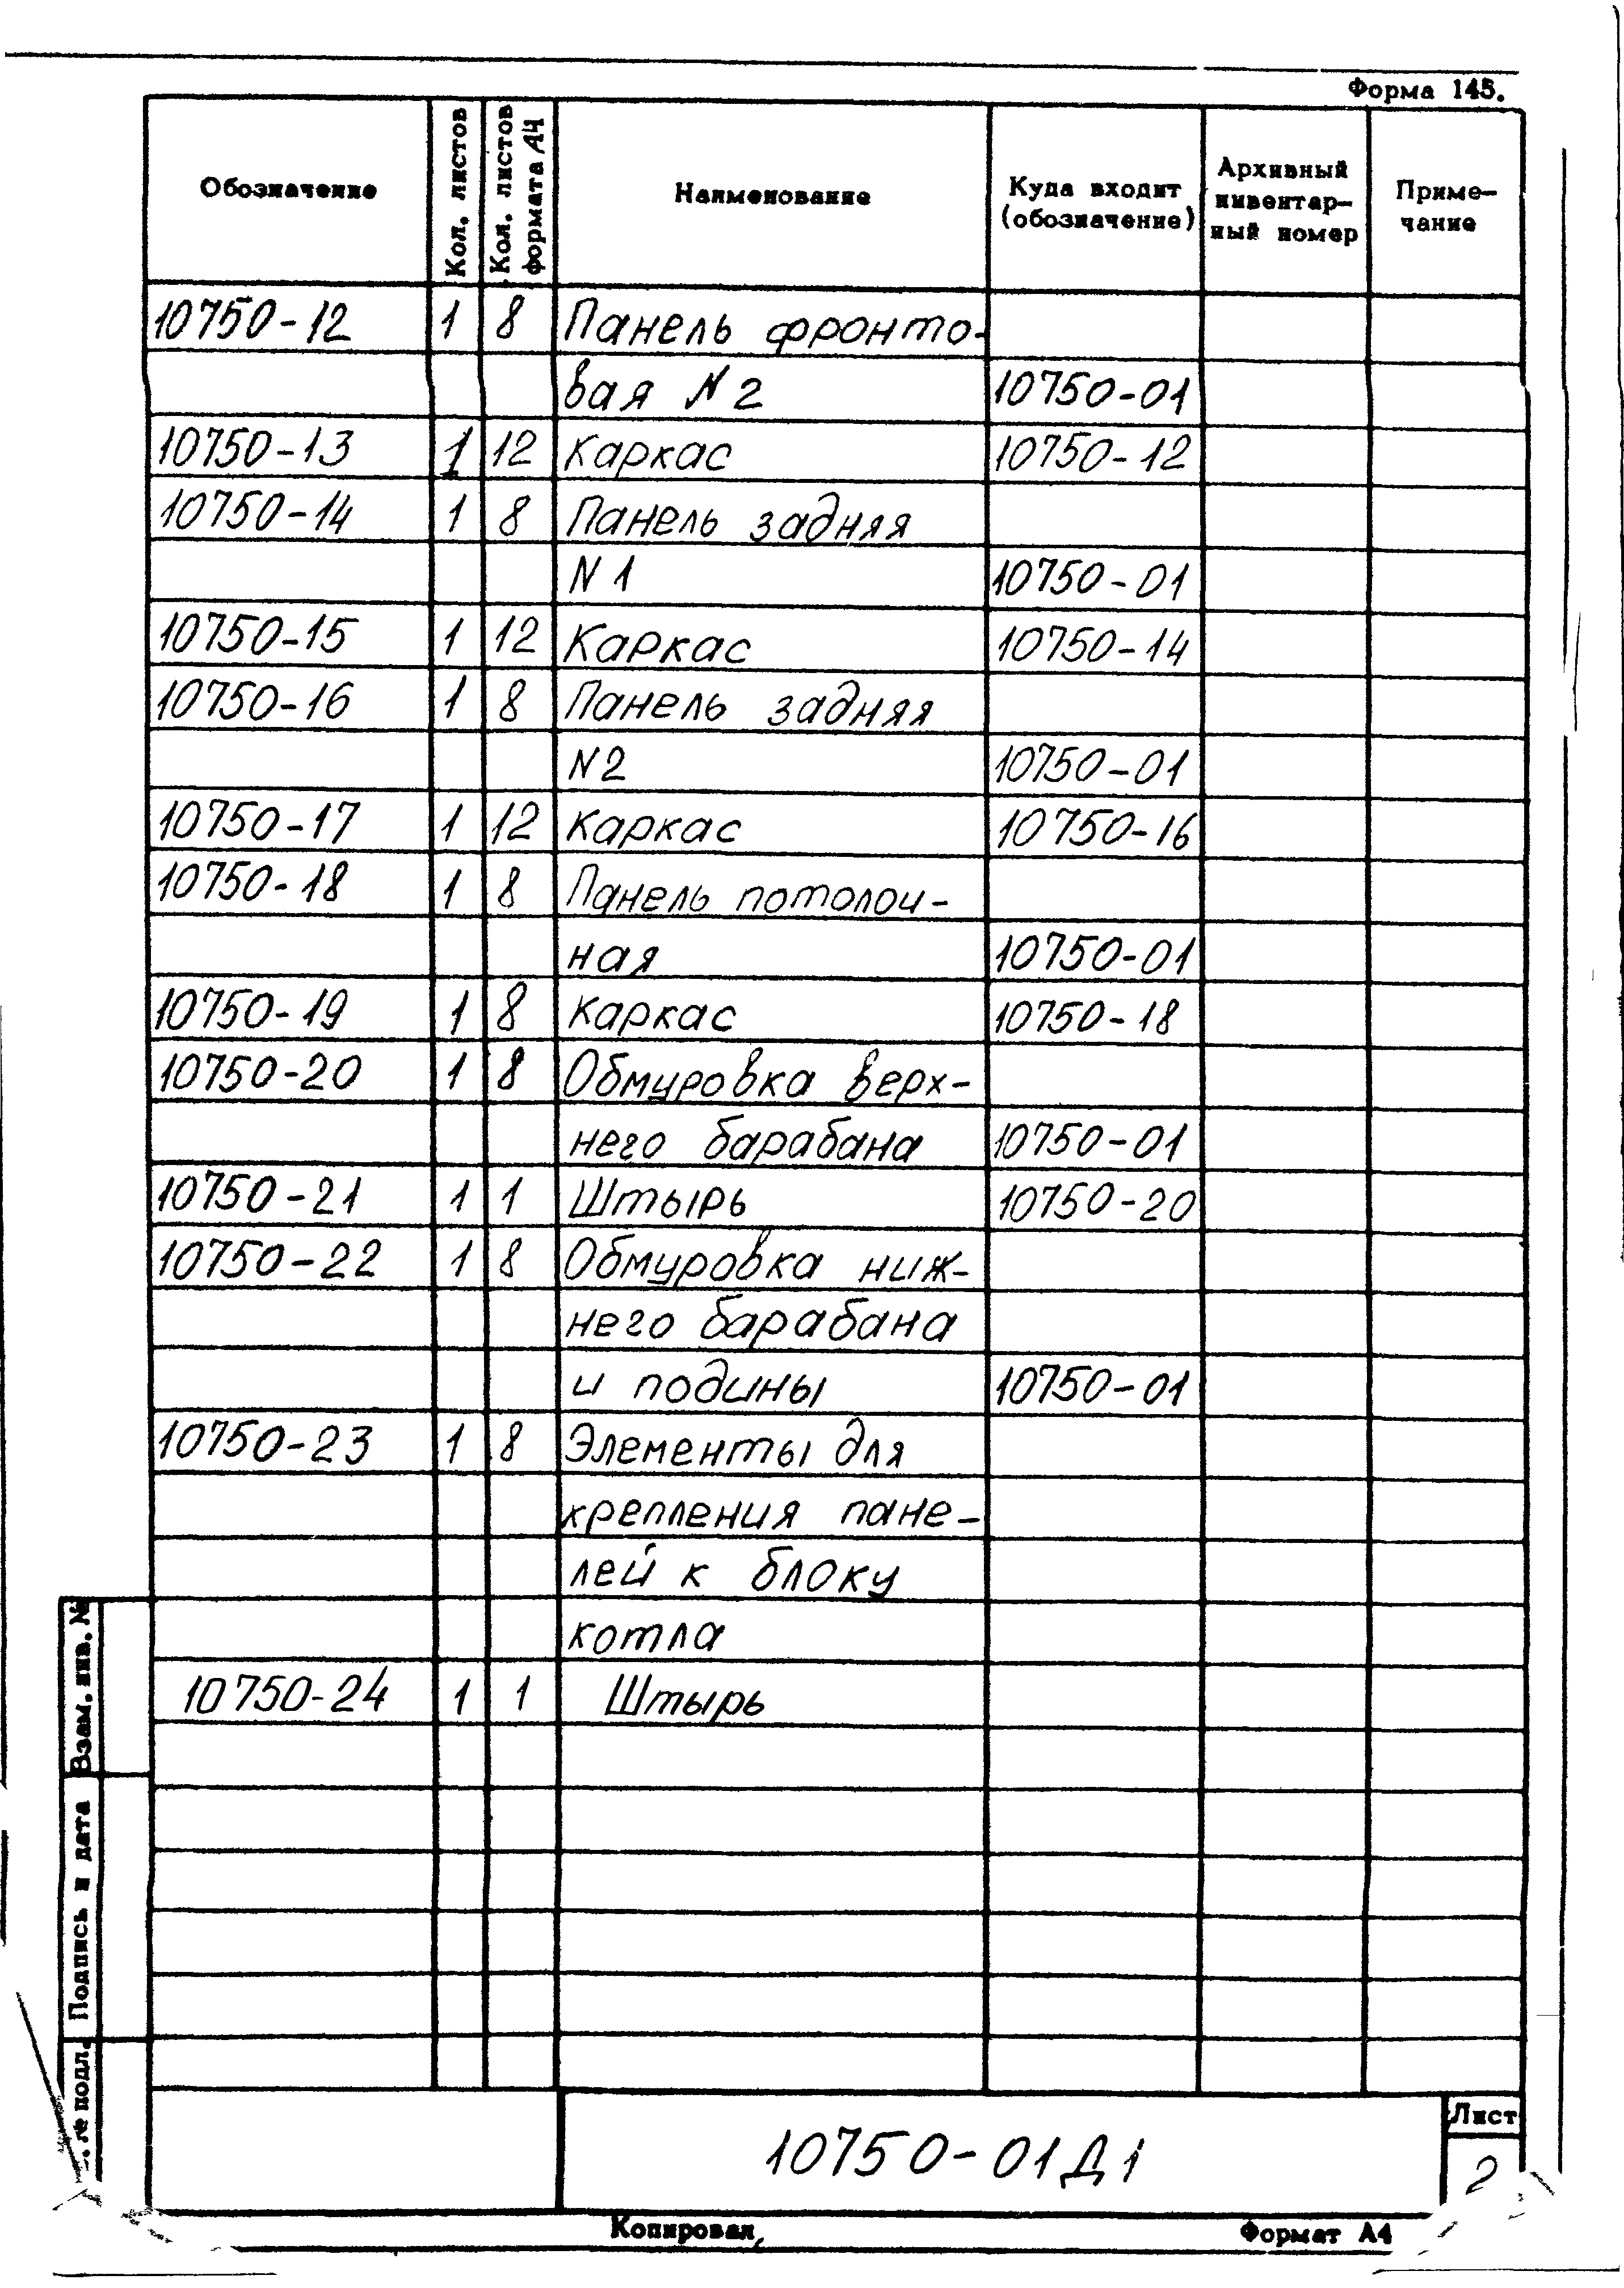 Форма 145.
Обозначение Кол. листов Кол. листов формата А4 Наименование Куда входит (обозначение) Архивный инвентар- ный номер Приме- чание
10750-12 1 8 Панель фронто-
вая N2 10750-01
10750-13 1 12 Каркас 10750-12
10750-14 1 8 Панель задняя
N1 10750-01
10750-15 1 12 Каркас 10750-14
10750-16 1 8 Панель задняя
N2 10750-01
10750-17 1 12 Каркас 10750-16
10750-18 1 8 Панель потолоч-
ная 10750-01
10750-19 1 8 Каркас 10750-18
10750-20 1 8 Обмуровка верх-
него барабана 10750-01
10750-21 1 1 Штырь 10750-20
10750-22 1 8 Обмуровка ниж-
него барабана
и подины 10750-01
10750-23 1 8 Элементы для
крепления пане-
лей к блоку
котла
10750-24 1 1 Штырь
Взам. инв. №
Подпись и дата
№ подл.
10750-01Д1
Лист
2
Копировал
Формат А4